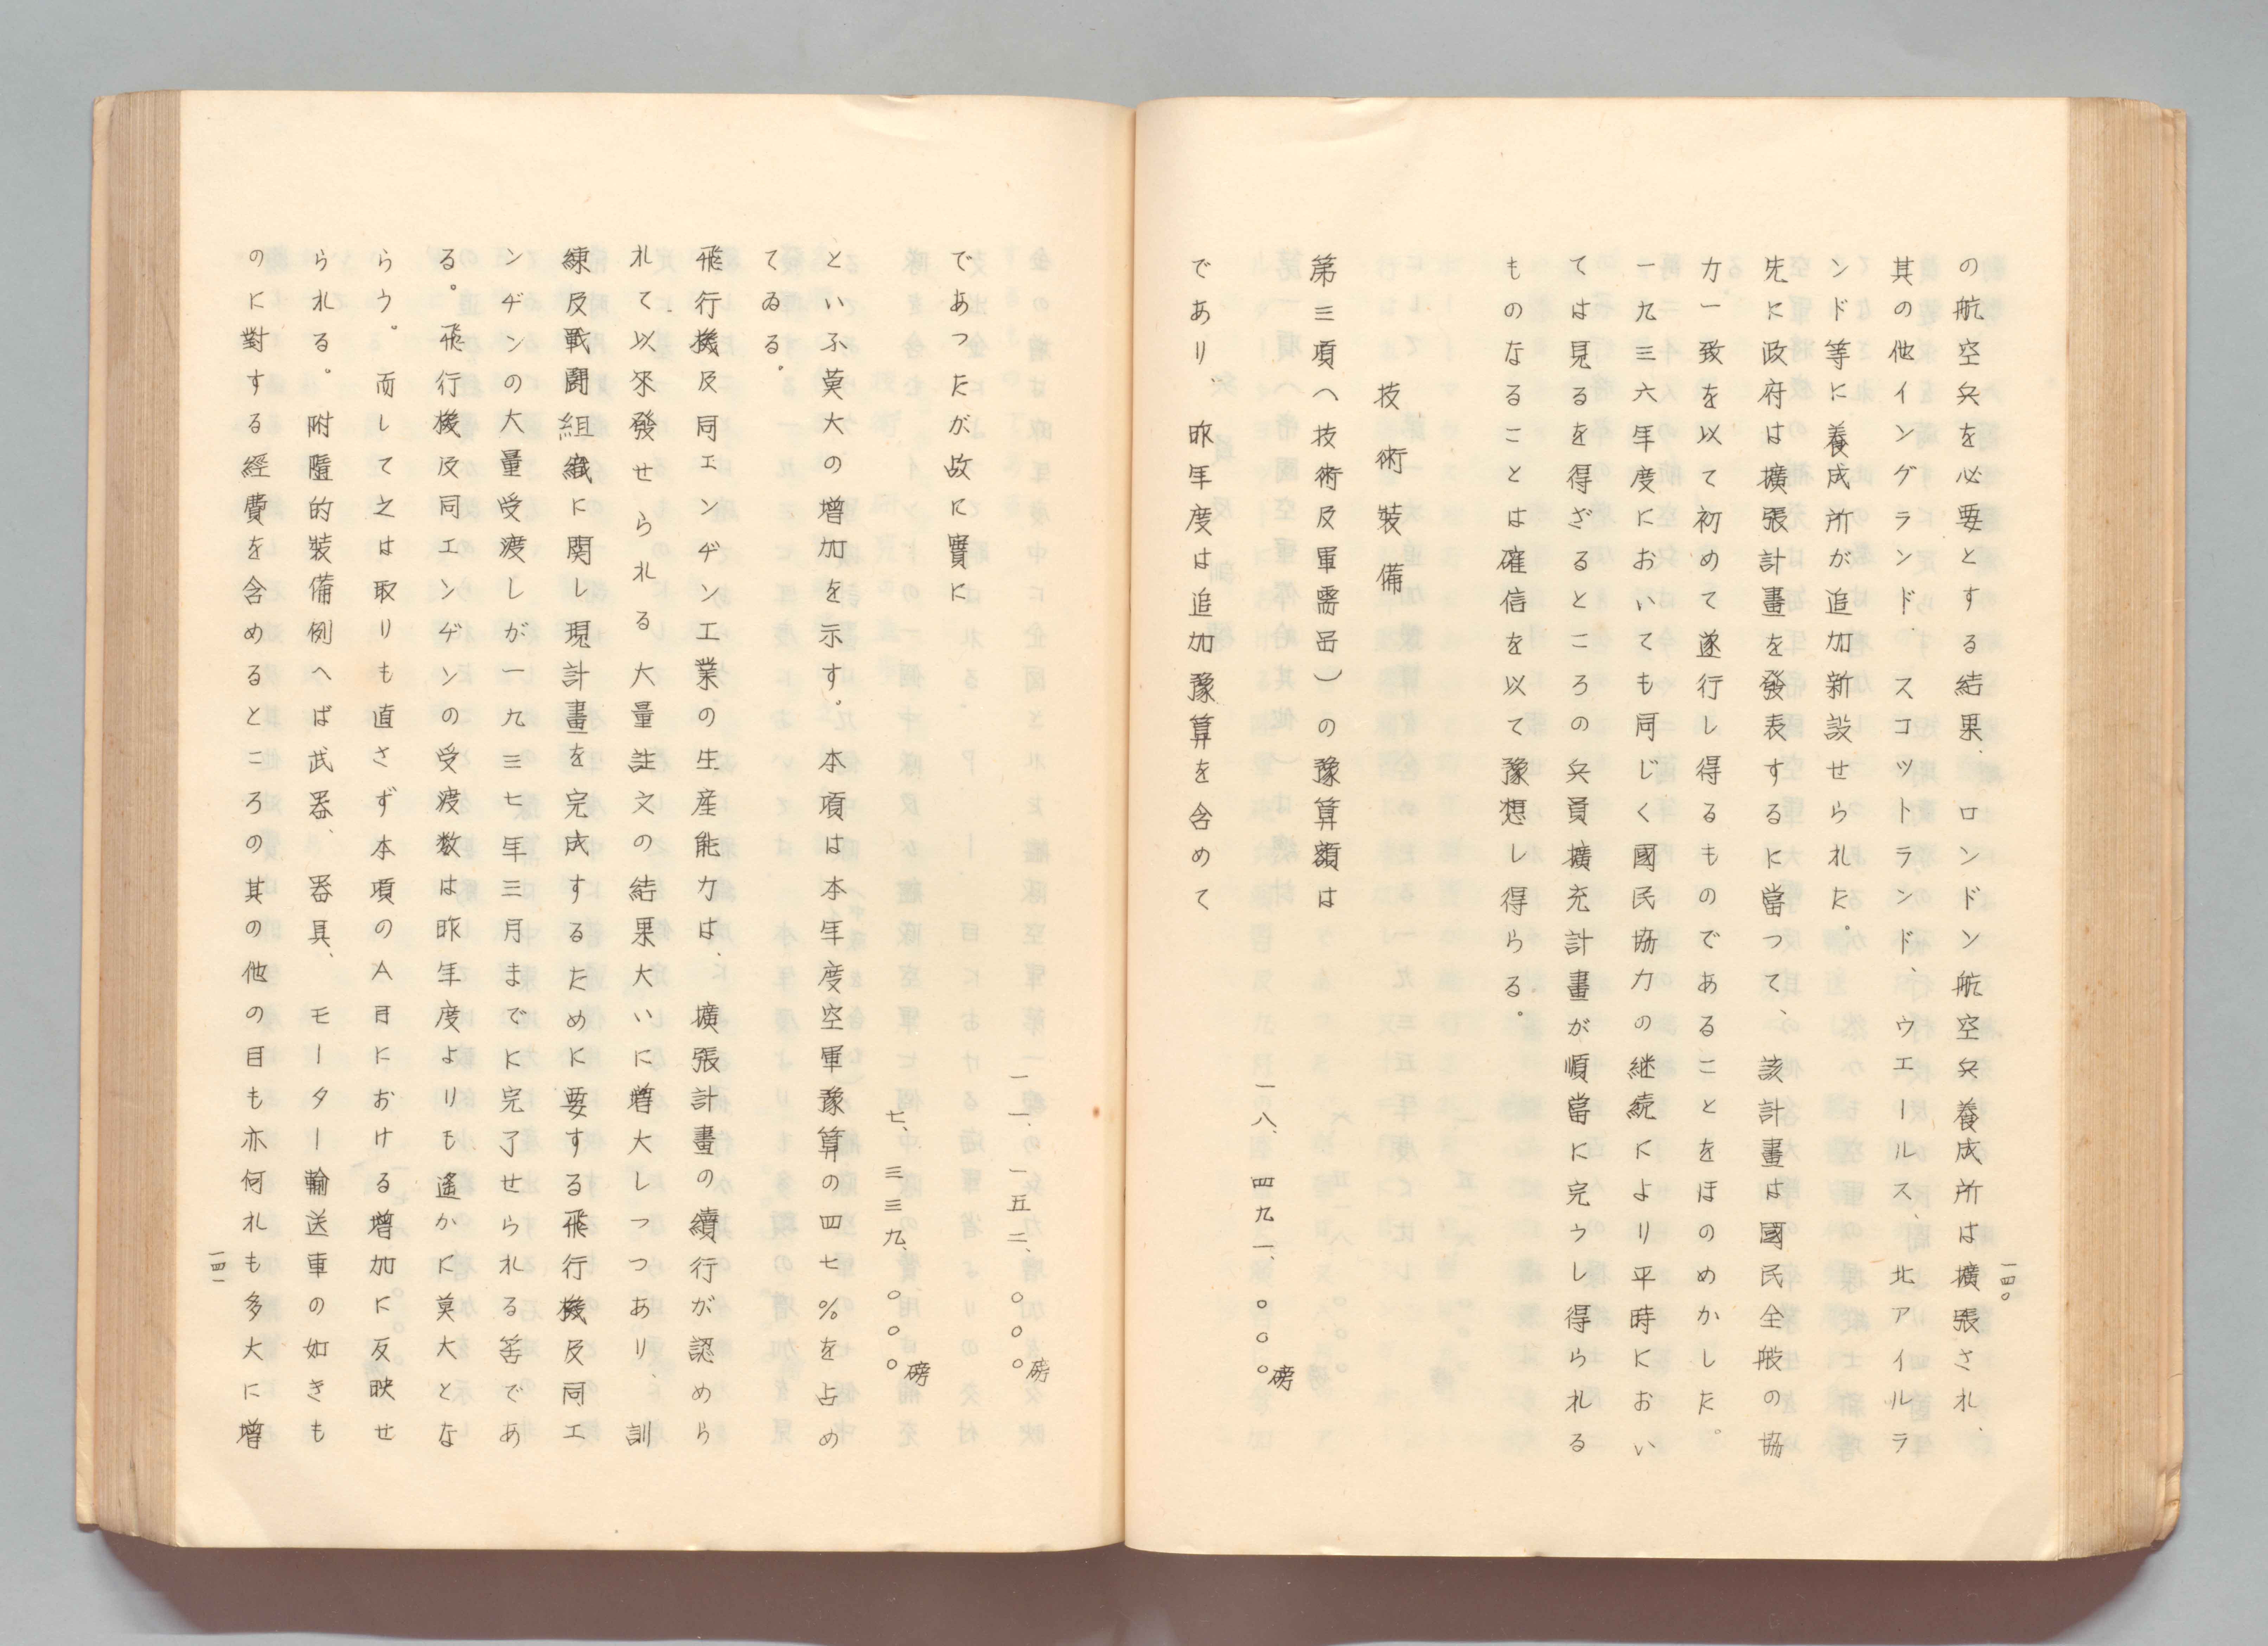 一四〇
の航空兵を必要とする結果、ロンドン航空兵養成所は擴張され、
其の他イングランド、スコツトランド、ウエールス、北アイルラ
ンド等に養成所が追加新設せられた。
先に政府は擴張計畫を發表するに當つて、該計畫は國民全般の協
力一致を以て初めて遂行し得るものであることをほのめかした。
一九三六年度においても同じく國民協力の継続により平時におい
ては見るを得ざるところの兵員擴充計畫が順當に完うし得られる
ものなることは確信を以て豫想し得らる。
技術裝備
第三項(技術及軍需品)の豫算額は
一八、四九一、〇〇〇磅
であり、昨年度は追加豫算を含めて
一一、一五二、〇〇〇磅
であつたが故に實に
七、三三九、〇〇〇磅
といふ莫大の増加を示す。本項は本年度空軍豫算の四七%を占め
てゐる。
飛行機及同エンヂン工業の生産能力は、擴張計畫の續行が認めら
れて以來發せられる大量註文の結果大いに増大しつつあり、訓
練及戰鬪組織に関し現計畫を完成するために要する飛行機及同エ
ンヂンの大量受渡しが一九三七年三月までに完了せられる筈であ
る。飛行機及同エンヂンの受渡数は昨年度よりも遙かに莫大とな
らう。而して之は取りも直さず本項のA目における増加に反映せ
られる。附隨的裝備例へば武器、器具、モーター輸送車の如きも
のに對する經費を含めるところの其の他の目も亦何れも多大に増
一四一